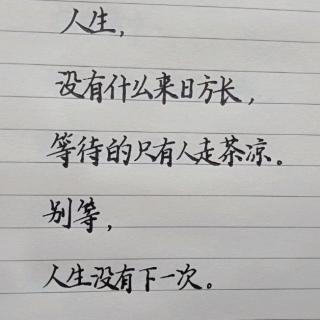 人生，
没有什么来日方长，
等待的只有人走茶凉。
别等，
人生没有下一次。